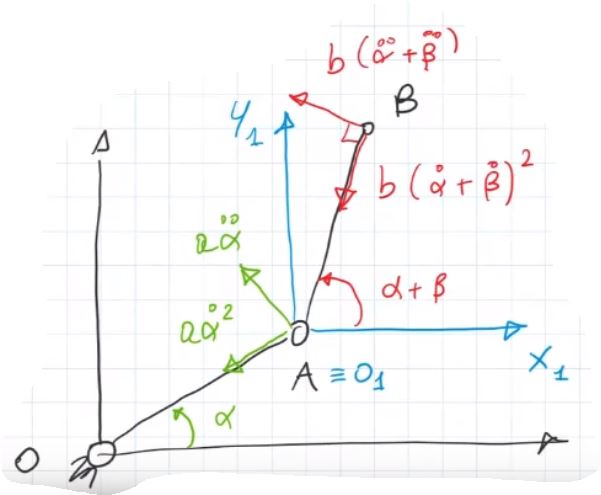 b (α̈ + β̈)
B
y₁
b (α̇ + β̇)²
aα̈
α + β
aα̇²
A ≡ O₁
x₁
α
O